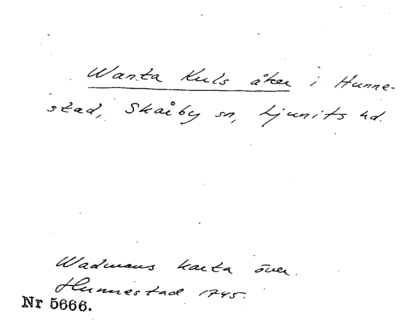 Wanta Kuls åker i Hunne-
stad, Skårby sn, Ljunits hd.
Wadmans karta över
Hunnestad 1745.
Nr 5666.